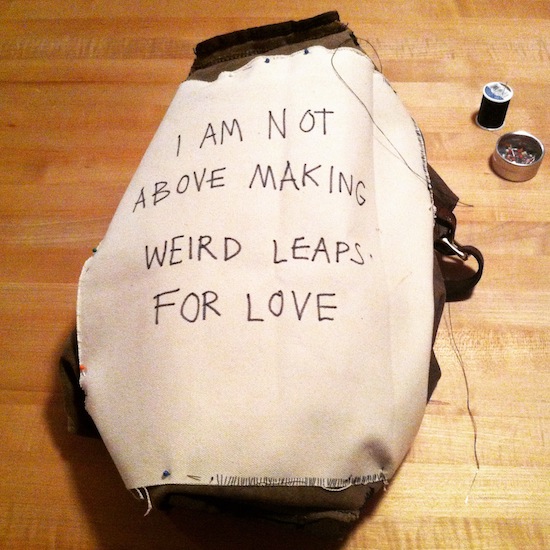 I AM NOT
ABOVE MAKING
WEIRD LEAPS.
FOR LOVE